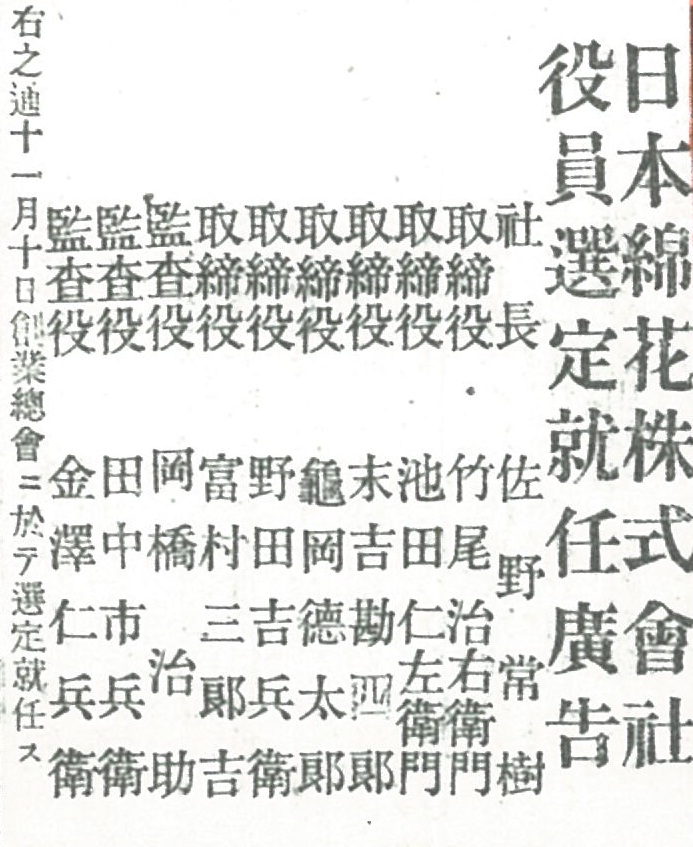 日本綿花株式會社
役員選定就任廣告
社長 佐野常樹
取締役 竹尾治右衛門
取締役 池田仁左衛門
取締役 末吉勘四郎
取締役 龜岡德太郎
取締役 野田吉兵衛
取締役 富村三郎吉
監査役 岡橋治助
監査役 田中市兵衛
監査役 金澤仁兵衛
右之通十一月十日創業總會ニ於テ選定就任ス